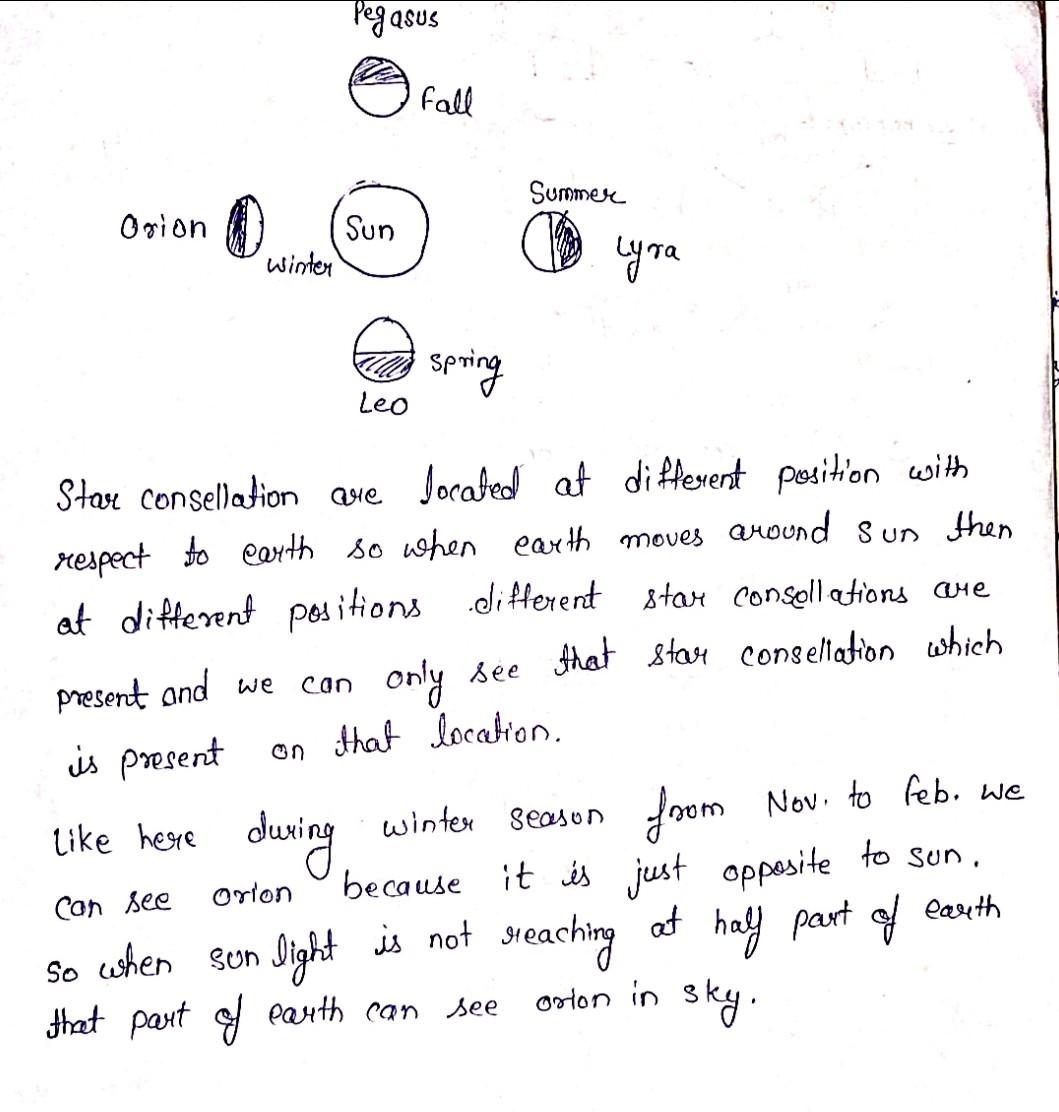 Pegasus
Fall
Summer
Orion
Sun
Lyra
Winter
Spring
Leo
Star consellation are located at different position with
respect to earth so when earth moves around sun then
at different positions different star consollations are
present and we can only see that star consellation which
is present on that location.
Like here during winter season from Nov. to Feb. we
can see orion because it is just opposite to sun.
So when sun light is not reaching at half part of earth
that part of earth can see orion in sky.